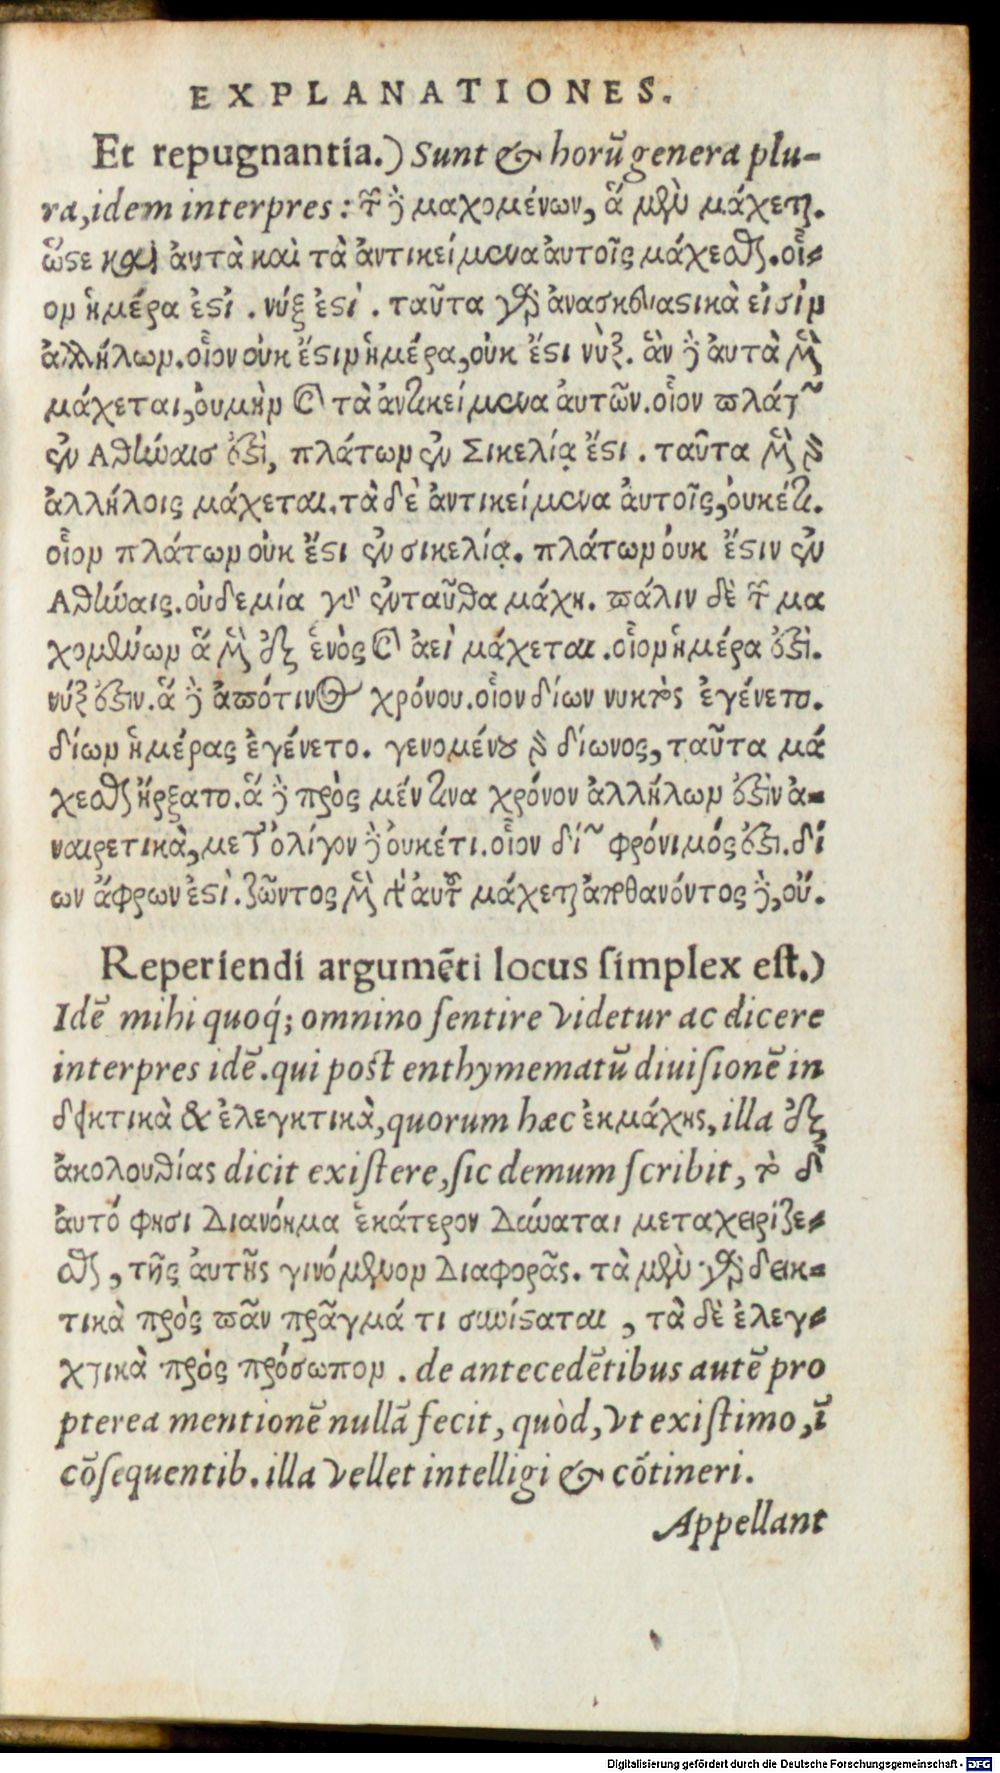 EXPLANATIONES.
Et repugnantia.) Sunt & horū genera plu-
ra, idem interpres: τῶν δὲ μαχομένων, ἃ μὲν μάχεται.
ὥστε καὶ ἀυτὰ καὶ τὰ ἀντικείμενα ἀυτοῖς μάχεσθαι. οἷ-
ον ἡμέρα ἐστί. νύξ ἐστί. ταῦτα γὰρ ἀνασκευαστικὰ εἰσὶν
ἀλλήλων. οἷον οὐκ ἔστιν ἡμέρα, οὐκ ἔστι νὺξ. ἂν δὲ ἀυτὰ μὲν
μάχεται, ὀυ μὴν καὶ τὰ ἀντικείμενα ἀυτῶν. οἷον πλάτων
ἐν Αθήναισ ἐστὶ, πλάτων ἐν Σικελίᾳ ἔστι. ταῦτα μὲν δὴ
ἀλλήλοις μάχεται. τὰ δὲ ἀντικείμενα ἀυτοῖς, ὀυκέτι.
οἷον πλάτων οὐκ ἔστι ἐν σικελίᾳ. πλάτων ὀυκ ἔστιν ἐν
Αθήναις. οὐδεμία γὰρ ἐνταῦθα μάχη. πάλιν δὲ τῶν μα
χομένων ἃ μὲν ἐξ ἑνὸς καὶ ἀεὶ μάχεται. οἷον ἡμέρα ἐστὶ.
νύξ ἐστιν. ἃ δὲ ἀπό τινος χρόνου. οἷον δίων νυκτὸς ἐγένετο.
δίων ἡμέρας ἐγένετο. γενομένου δὴ δίωνος, ταῦτα μά
χεσθαι ἤρξατο. ἃ δὲ πρὸς μέν τινα χρόνον ἀλλήλων ἐστὶν ἀ-
ναιρετικὰ, μετ' ὀλίγον δὲ ὀυκέτι. οἷον δίων φρόνιμός ἐστι. δί
ων ἄφρων ἐστὶ. ζῶντος μὲν αὐτοῦ μάχεται ἀποθανόντος δὲ, οὔ.
Reperiendi argumēti locus simplex est.)
Idē mihi quoq; omnino sentire videtur ac dicere
interpres idē. qui post enthymematū diuisionē in
δεικτικὰ & ἐλεγκτικὰ, quorum hæc ἐκ μάχης, illa ἐξ
ἀκολουθίας dicit existere, sic demum scribit, τὸ δ'
ἀυτό φησι Διανόημα ἑκάτερον Δύναται μεταχειρίζε-
σθαι, τῆς ἀυτῆς γινόμενον Διαφορᾶς. τὰ μὲν γὰρ δεικ-
τικὰ πρὸς πᾶν πρᾶγμά τι συνίσταται, τὰ δὲ ἐλεγ-
χτικὰ πρὸς πρόσωπον. de antecedētibus autē pro
pterea mentionē nullā fecit, quòd, vt existimo, ī
cōsequentib. illa vellet intelligi & cōtineri.
Appellant
Digitalisierung gefördert durch die Deutsche Forschungsgemeinschaft - DFG